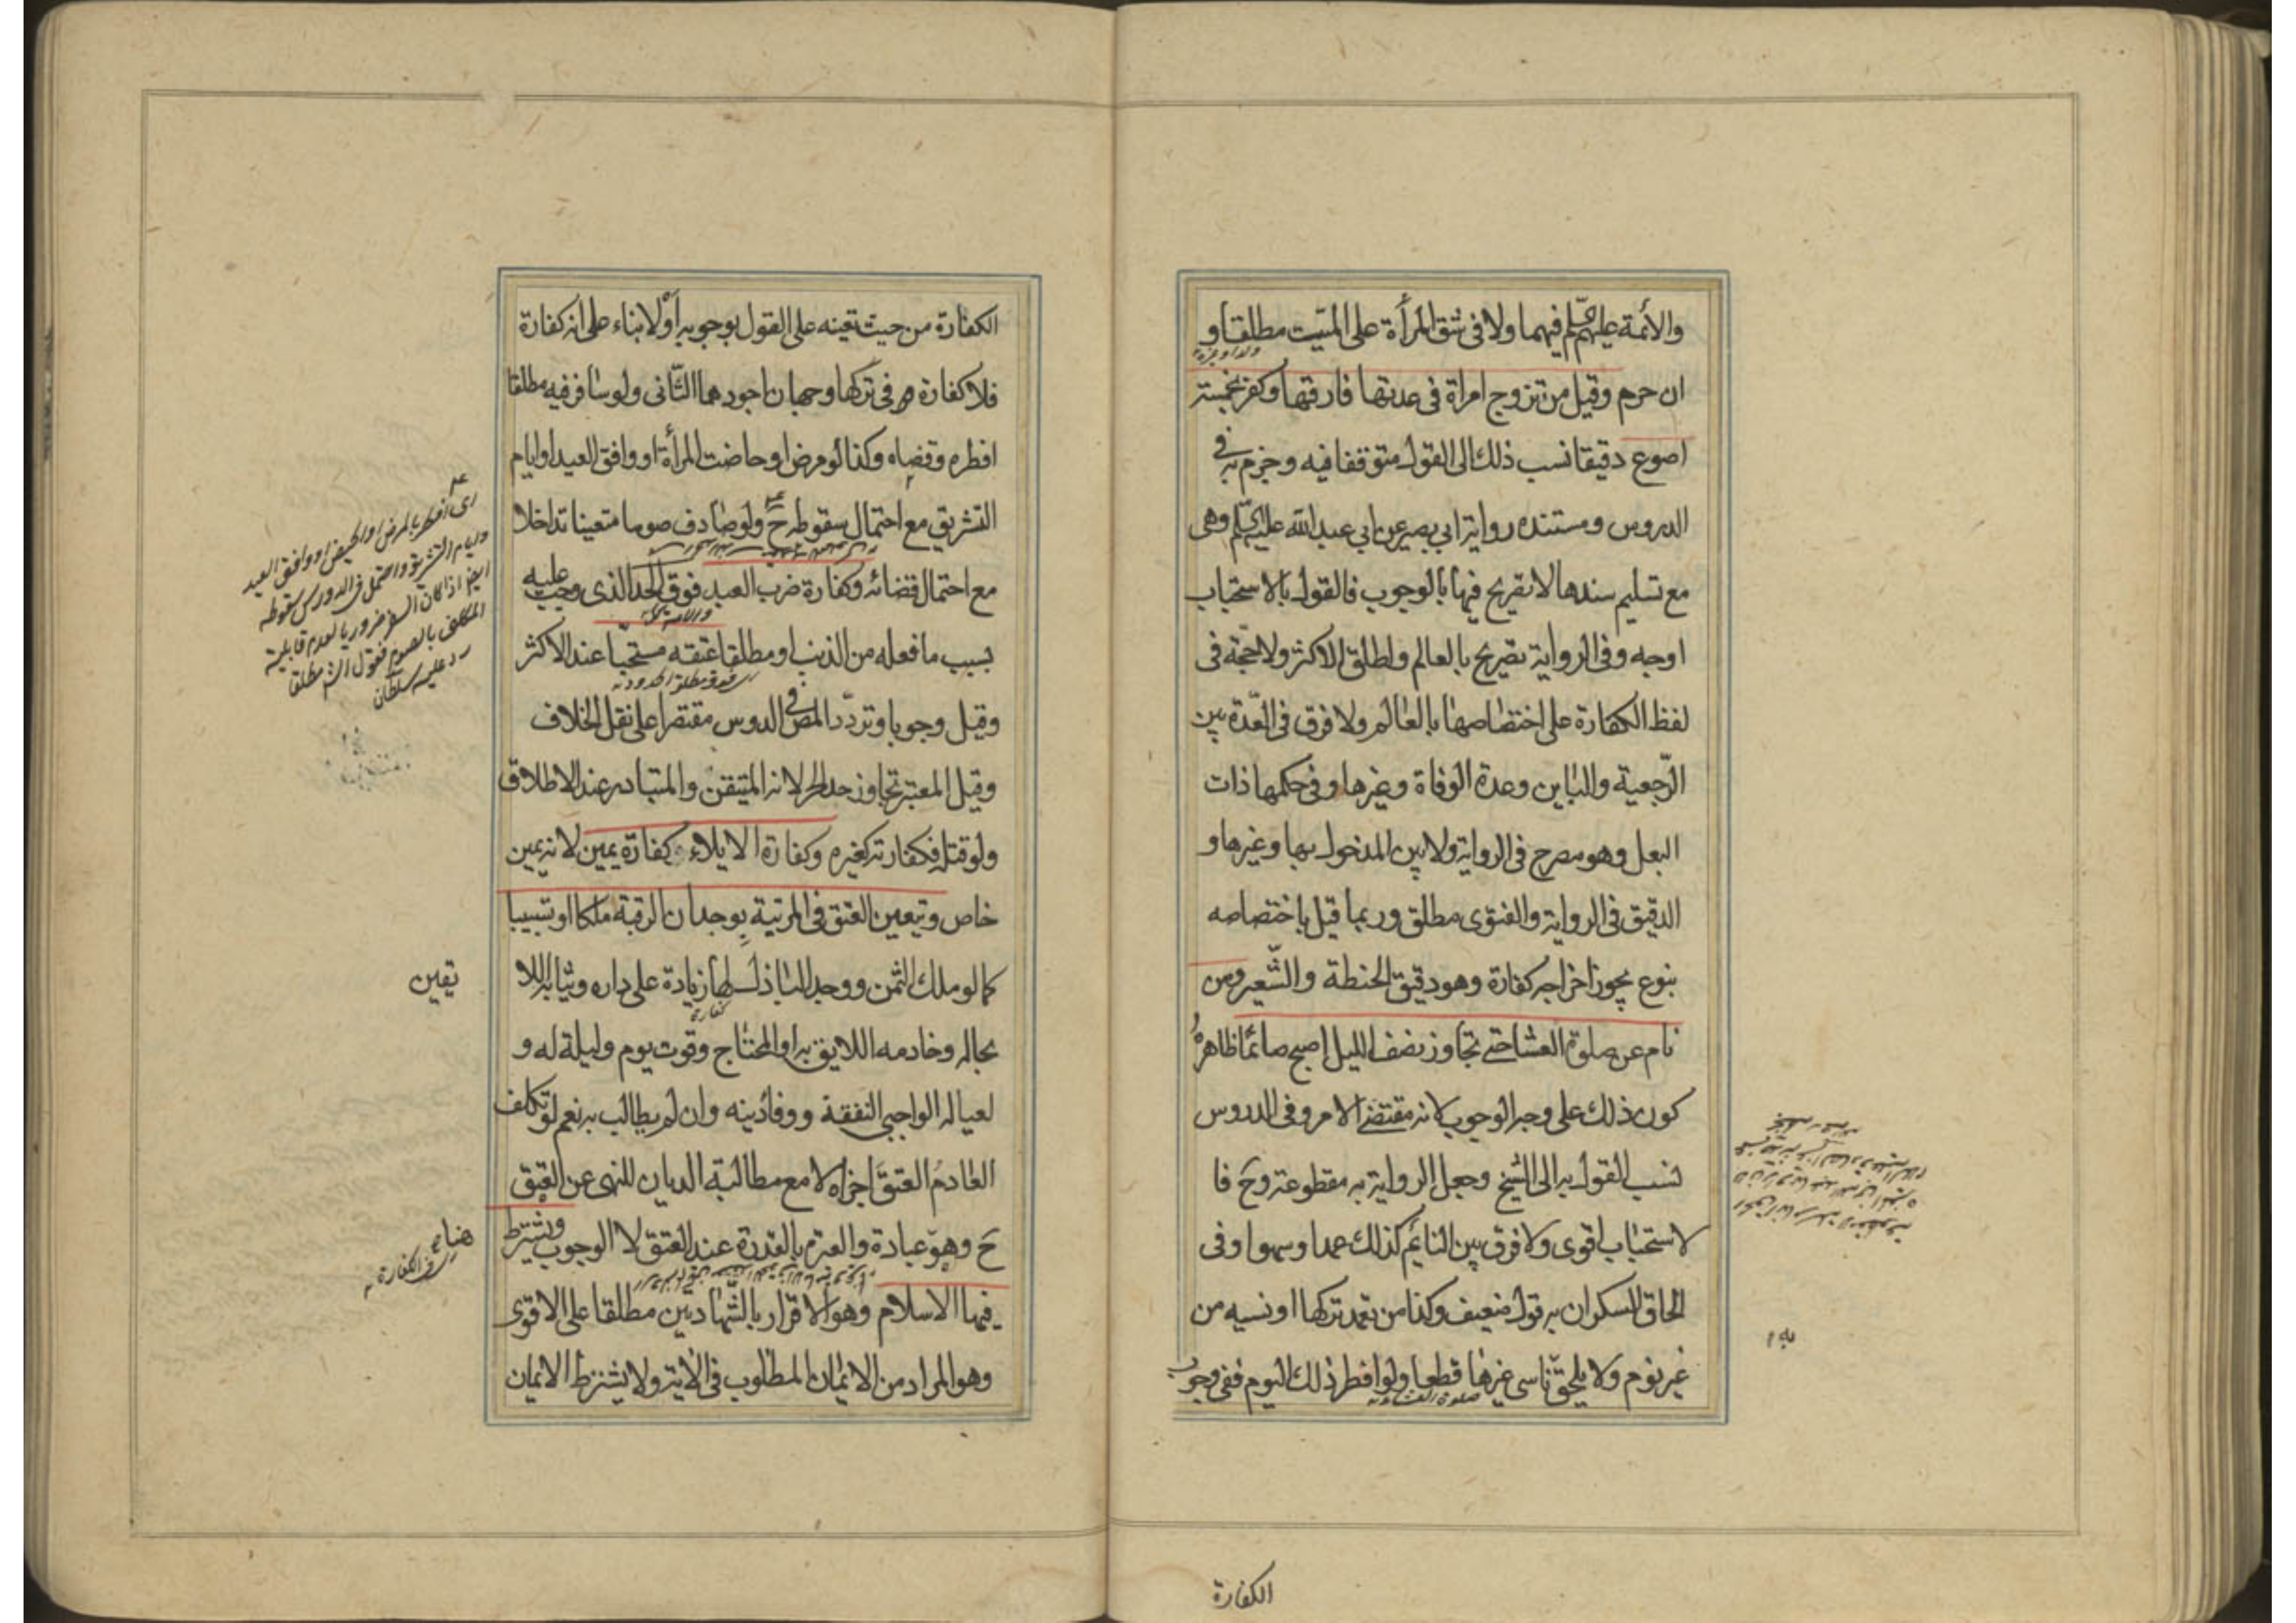 والأئمة عليهم السلم فيهما ولا في شق المرأة على الميت مطلقا و
ان حرم وقيل من تزوج امراة في عدتها فارقها وكفر بخمسة
اصوع دقيقا نسب ذلك الى القول متوقفا فيه وجزم به في
الدروس ومستنده رواية ابي بصير عن ابي عبد الله عليه السلم وهي
مع تسليم سندها لا تصريح فيها بالوجوب فالقول بالاستحباب
اوجه وفي الرواية تصريح بالعالم واطلق الاكثر ولا حجة في
لفظ الكفارة على اختصاصها بالعالم ولا فرق في العدة بين
الرجعية والباين وعدة الوفاة وغيرها وفي حكمها ذات
البعل وهو مصرح في الرواية ولا بين المدخول بها وغيرها و
الدقيق في الرواية والفتوى مطلق وربما قيل باختصاصه
بنوع يجوز اخراجه كفارة وهو دقيق الحنطة والشعير ومن
نام عن صلوة العشا حتى تجاوز نصف الليل اصبح صائما ظاهره
كون ذلك على وجه الوجوب لانه مقتضى الامر وفي الدروس
نسب القول به الى الشيخ وجعل الرواية به مقطوعة وح فا
لاستحباب اقوى ولا فرق بين النائم كذلك عمدا وسهوا وفي
الحاق السكران به قول ضعيف وكذا من تعمد تركها او نسيه من
غير نوم ولا يلحق ناسي غيرها قطعا ولو افطر ذلك اليوم ففي وجوب
صلوة العشاء
الكفارة
الكفارة من حيث تعينه على القول بوجوبه أولا بناء على انه كفارة
فلا كفارة في تركها وجهان اجودهما الثاني ولو سافر فيه مطلقا
افطره وقضاه وكذا لو مرض او حاضت المرأة او وافق العيد او ايام
التشريق مع احتمال سقوطه ح ولو صادف صوما متعينا تداخلا
مع احتمال قضائه وكفارة ضرب العبد فوق الحد الذي وجب عليه
بسبب ما فعله من الذنب او مطلقا عتقه مستحبا عند الاكثر
وقيل وجوبا وتردد المص في الدروس مقتصرا على نقل الخلاف
وقيل المعتبر تجاوز حد الحر لانه المتيقن والمتبادر عند الاطلاق
ولو قتله فكفارته كغيره وكفارة الايلاء كفارة يمين لانه يمين
خاص وتيعين العتق في المرتبة بوجدان الرقبة ملكا او تسبيبا
كما لو ملك الثمن ووجد الباذل لها زيادة على داره وثيابه اللا
بحاله وخادمه اللايق به او المحتاج وقوت يوم وليلة له و
لعياله الواجبي النفقة ووفا دينه وان لم يطالب به نعم لو تكلف
العادم العتق اجزاه لا مع مطالبة الديان للنهى عن العتق
ح وهو عبادة والعبرة بالقدرة عند العتق لا الوجوب ويشترط
فيها الاسلام وهو الاقرار بالشهادتين مطلقا على الاقوى
وهو المراد من الايمان المطلوب في الاية ولا يشترط الايمان
اي افطر بالمرض او الحيض او وافق العيد
وايام التشريق واحتمل في الدروس سقوطه
ايضا اذا كان السفر ضروريا لعدم قابلية
المكلف بالصوم فقول الش مطلقا
رد عليه سلطان
يقين